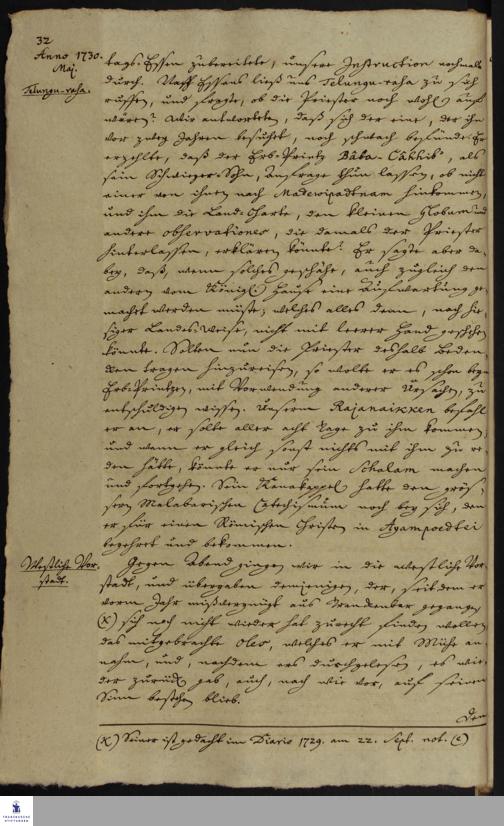 32
Anno 1730.
Maj.
Telungu-raja.
tags-Essen zubereitete, unsere Instruction nochmals
durch. Nach Essens ließ uns Telungu-raja zu sich
ruffen, und fragte, ob die Priester noch wohl auf
wären? Wir antworteten, daß sich der eine, der ihn
vor zwey Jahren besuchet, noch schwach befünde. Er
erzehlte, daß der Erb-Printz Bâba-Câhhib, als
sein Schwieger-Sohn, Anfrage thun lassen, ob nicht
einer von ihnen nach Madewipadtnam hinkommen,
und ihm die Land-Charte, den kleinen Globum und
andere observationes, die damals der Priester
hinterlassen, erklären könnte? Er sagte aber da-
bey, daß, wenn solches geschähe, auch zugleich den
andern vom Königl. Hause eine Aufwartung ge-
macht werden müste; welches alles denn, nach hie-
siger Landes-Weise, nicht mit leerer Hand geschehen
könnte. Solten nun die Priester deshalb Beden-
cken tragen hinzureisen, so wolte er es schon beym
Erb-Printzen, mit Vorwendung anderer Ursachen, zu
entschuldigen wissen. Unserm Rajanaikken befahl
er an, er solte aller acht Tage zu ihm kommen,
und wenn er gleich sonst nichts mit ihm zu re-
den hätte, könnte er nur sein Schalam machen
und fortgehen. Sein Kanakappel hatte den grös-
sern Malabarischen Catechismum noch bey sich, den
er für einen Römischen Christen in Ayampoedtei
begehret und bekommen.
Westliche Vor-
stadt.
Gegen Abend gingen wir in die westliche Vor-
stadt, und übergaben demjenigen, der, seitdem er
vorm Jahr mißvergnügt aus Trankenbar gegangen
(x) sich noch nicht wieder hat zurecht finden wollen
das mitgebrachte Oles, welches er mit Mühe an-
nahm, und, nachdem ers durchgelesen, es wie-
der zurück gab, auch, nach wie vor, auf seinem
Sinn bestehen blieb.
Den
(x) Seiner ist gedacht im Diario 1729. am 22. Sept. not. (e)
FRANCKESCHE
STIFTUNGEN